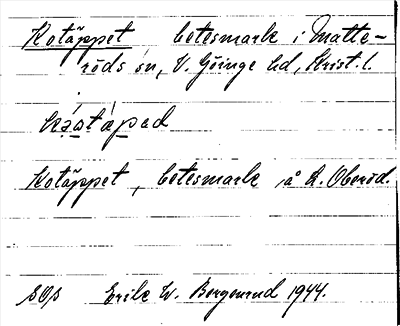 Kotäppet betesmark i Matte-
röds sn, V. Göinge hd, Krist. l.
Kotäppet, betesmark å L. Oberöd.
SOS Erik W. Bergenrud 1944.